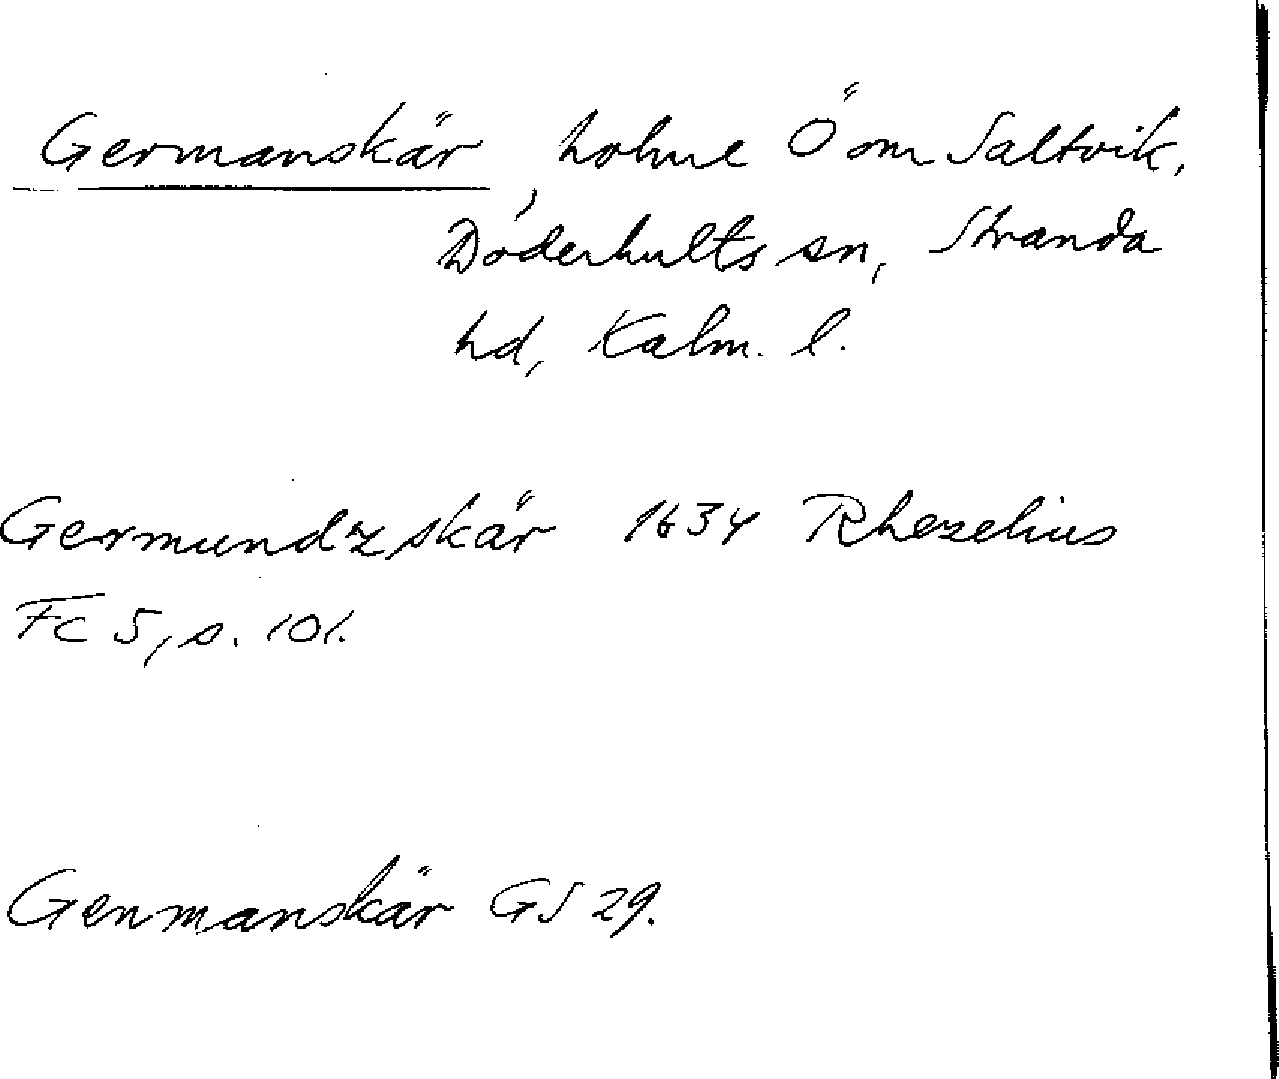 Germanskär, holme Ö om Saltvik,
Döderhults sn, Stranda
hd, Kalm. l.
Germundzskär 1634 Rhezelius
Fc 5, s. 101.
Germanskär GS 29.